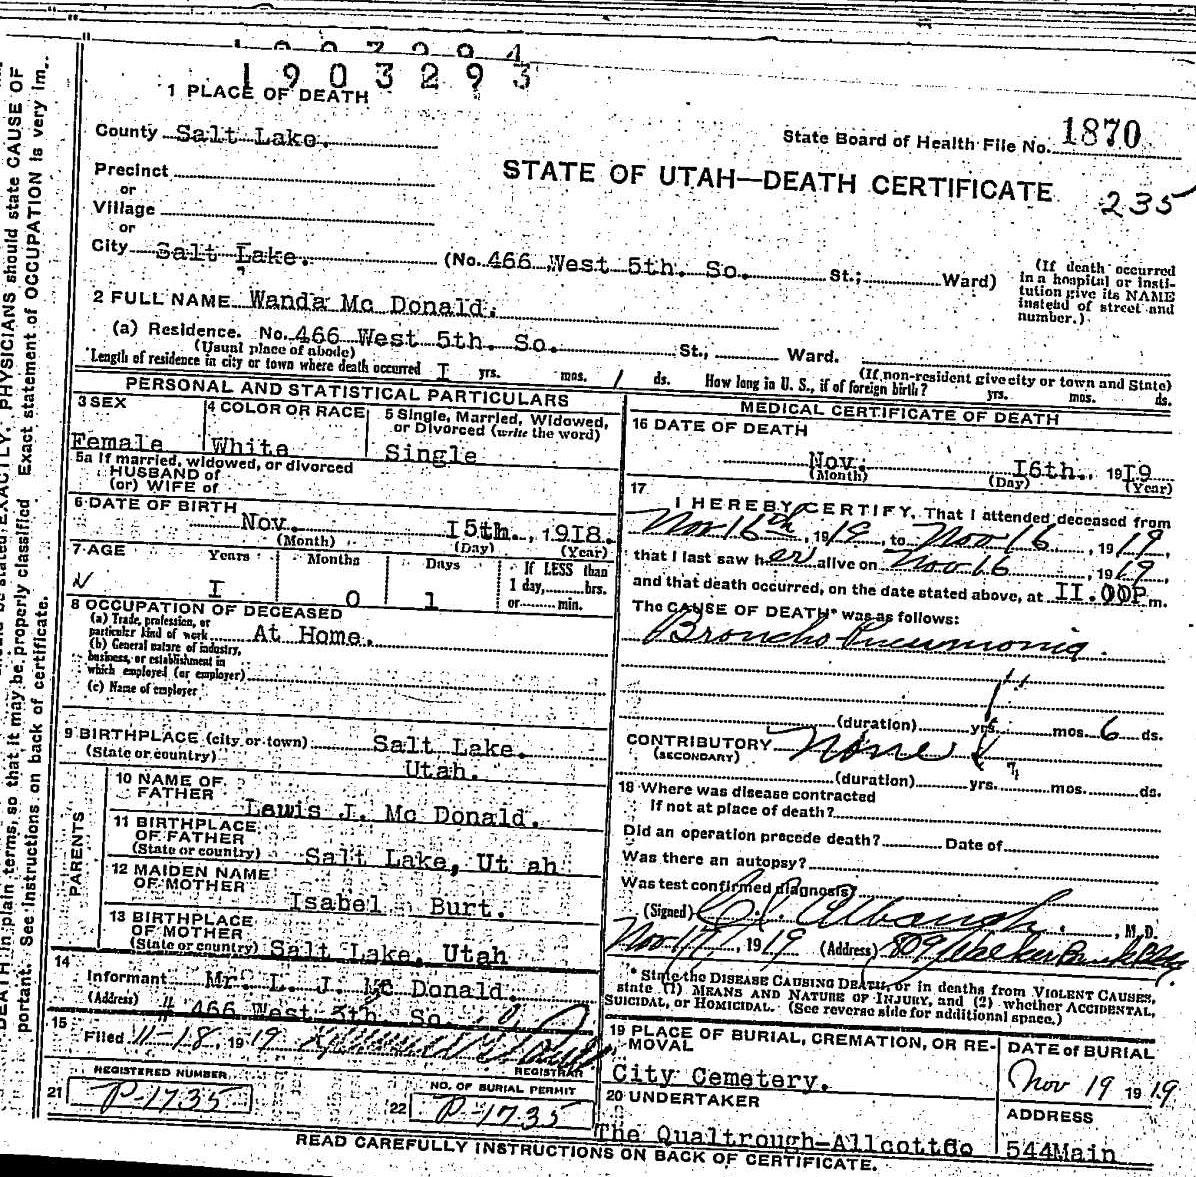 1903293
1 PLACE OF DEATH
County Salt Lake.
State Board of Health File No. 1870
STATE OF UTAH—DEATH CERTIFICATE
235
Precinct
or
Village
or
City Salt Lake. (No. 466 West 5th. So. St.; Ward)
(If death occurred
in a hospital or insti-
tution give its NAME
instead of street and
number.)
2 FULL NAME Wanda Mc Donald.
(a) Residence. No. 466 West 5th. So. St., Ward.
(Usual place of abode)
(If non-resident give city or town and State)
Length of residence in city or town where death occurred I yrs. mos. / ds. How long in U. S., if of foreign birth? yrs. mos. ds.
PERSONAL AND STATISTICAL PARTICULARS
3 SEX
Female
4 COLOR OR RACE
White
5 Single, Married, Widowed,
or Divorced (write the word)
Single
5a If married, widowed, or divorced
HUSBAND of
(or) WIFE of
6 DATE OF BIRTH
Nov. I5th., 1918.
(Month) (Day) (Year)
7 AGE Years Months Days If LESS than
1 day, hrs.
or min.
I 0 1
8 OCCUPATION OF DECEASED
(a) Trade, profession, or
particular kind of work At Home.
(b) General nature of industry,
business, or establishment in
which employed (or employer)
(c) Name of employer
9 BIRTHPLACE (city or town) Salt Lake.
(State or country) Utah.
PARENTS
10 NAME OF
FATHER Lewis J. Mc Donald.
11 BIRTHPLACE
OF FATHER
(State or country) Salt Lake, Ut ah
12 MAIDEN NAME
OF MOTHER Isabel Burt.
13 BIRTHPLACE
OF MOTHER
(State or country) Salt Lake, Utah
14
Informant Mr. L. J. Mc Donald.
(Address) # 466 West 5th. So.
15
Filed 11-18, 1919
REGISTRAR
REGISTERED NUMBER
21 P-1735
NO. OF BURIAL PERMIT
22 P-1735
MEDICAL CERTIFICATE OF DEATH
16 DATE OF DEATH
Nov. I6th. 19I9
(Month) (Day) (Year)
17
I HEREBY CERTIFY, That I attended deceased from
Nov 16th, 1919, to Nov 16, 1919,
that I last saw her alive on Nov 16, 1919,
and that death occurred, on the date stated above, at II.00P m.
The CAUSE OF DEATH* was as follows:
Broncho Pneumonia.
(duration) yrs. mos. 6 ds.
CONTRIBUTORY None
(SECONDARY)
(duration) yrs. mos. ds.
18 Where was disease contracted
If not at place of death?
Did an operation precede death? Date of
Was there an autopsy?
Was test confirmed diagnosis?
(Signed) Albaugh, M.D.
Nov 17, 1919 (Address) 809 Walker Bank Bldg.
* State the DISEASE CAUSING DEATH, or in deaths from VIOLENT CAUSES,
state (1) MEANS AND NATURE OF INJURY, and (2) whether ACCIDENTAL,
SUICIDAL, or HOMICIDAL. (See reverse side for additional space.)
19 PLACE OF BURIAL, CREMATION, OR RE-
MOVAL
City Cemetery.
DATE of BURIAL
Nov 19 1919
20 UNDERTAKER
The Qualtrough-Allcott Co
ADDRESS
544 Main
READ CAREFULLY INSTRUCTIONS ON BACK OF CERTIFICATE.
be stated EXACTLY. PHYSICIANS should state CAUSE OF
DEATH in plain terms, so that it may be properly classified. Exact statement of OCCUPATION is very im-
portant. See instructions on back of certificate.